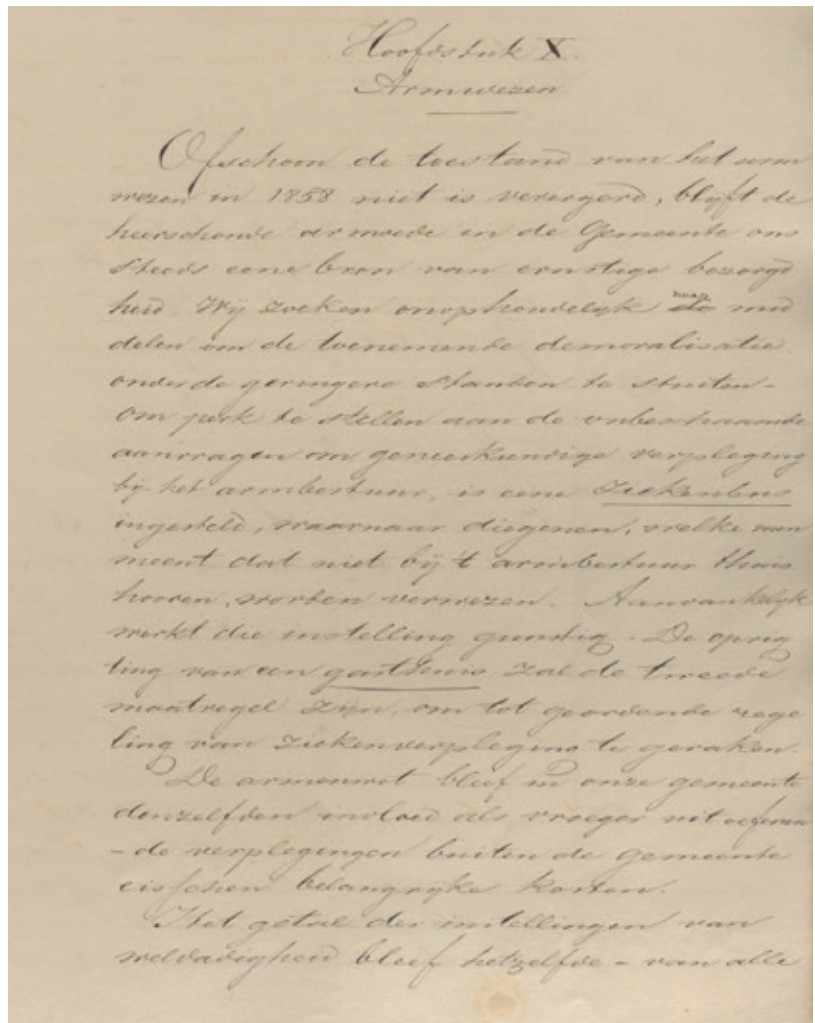 Hoofdstuk X.
Armwezen
Ofschoon de toestand van het arm
wezen in 1858 niet is verergerd, blijft de
heerschende armoede in de Gemeente ons
steeds eene bron van ernstige bezorgd
heid. Wij zoeken onophoudelijk naar mid
delen om de toenemende demoralisatie
onder de geringere standen te stuiten –
Om perk te stellen aan de onbeschaamde
aanvragen om geneeskundige verpleging
bij het armbestuur, is eene ziekenbus
ingesteld, waarnaar diegenen, welke men
meent dat niet bij 't armbestuur thuis
hooren, worden verwezen. Aanvankelijk
werkt die instelling gunstig. De oprig
ting van een gasthuis zal de tweede
maatregel zijn, om tot geordende rege
ling van ziekenverpleging te geraken.
De armenwet bleef in onze gemeente
denzelfden invloed als vroeger uitoefenen
– de verplegingen buiten de gemeente
eisschen belangrijke kosten.
Het getal der instellingen van
weldadigheid bleef hetzelfde – van alle